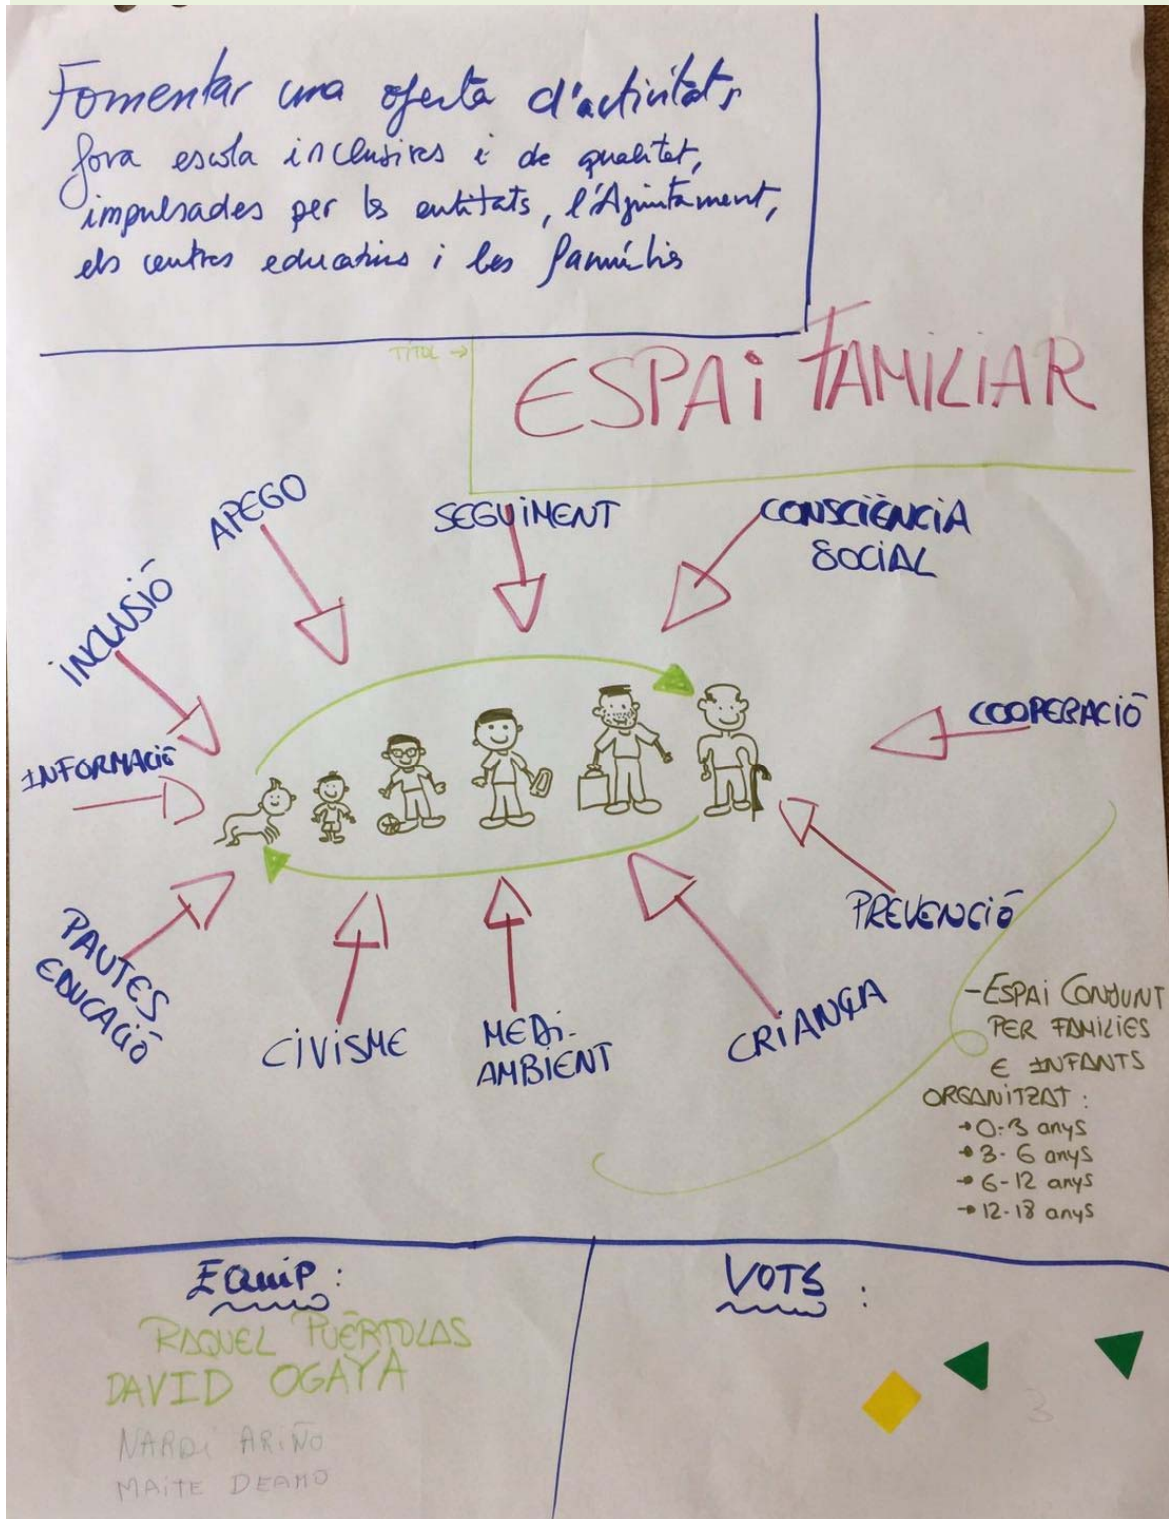 Fomentar una oferta d'activitats
fora escola inclusives i de qualitat,
impulsades per les entitats, l'Ajuntament,
els centres educatius i les famílies
TÍTOL →
ESPAi FAMILIAR
APEGO
SEGUiMENT
CONSCIÈNCIA
SOCIAL
INCLUSIÓ
INFORMACIÓ
COOPERACIÓ
PREVENCIÓ
PAUTES
EDUCACIÓ
CIVISME
MEDi-
AMBIENT
CRIANÇA
- ESPAI CONJUNT
PER FAMILIES
E INFANTS
ORGANITZAT :
→ 0-3 anys
→ 3-6 anys
→ 6-12 anys
→ 12-18 anys
EQUIP :
RAQUEL PUÉRTOLAS
DAVID OGAYA
NARDi ARIÑO
MAITE DEAMO
VOTS :
3